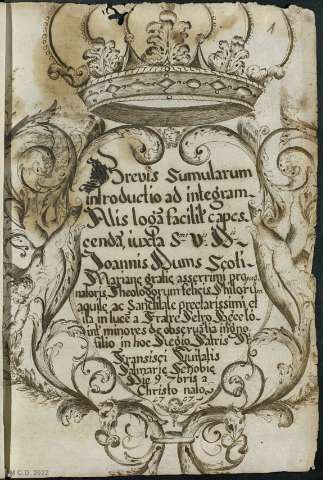 1
Brevis Sumularum
introductio ad integram
Alis log facilit capes
cenda, iuxta V. D.
Joannis Duns Scoti
Mariane gratie asserrimi prop
natoris, Theologorum felicis, Philorum
aquile ac Sanctitate preclarissimi, et
ita in luce a Fratre Petro
minores de observatia
in hoc Regio Patris N.
Fransisci
Palmarie
Die 9 bris a
Christo nato
M C.D. 2022